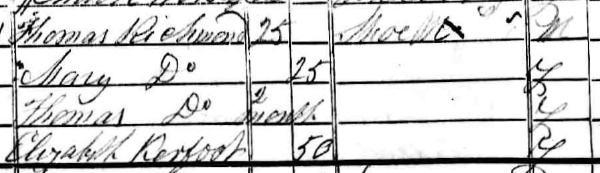 Thomas Richmond 25 Shoe M N
Mary Do 25 Y
Thomas Do 2 months Y
Elizabeth Kerfoot 50 Y